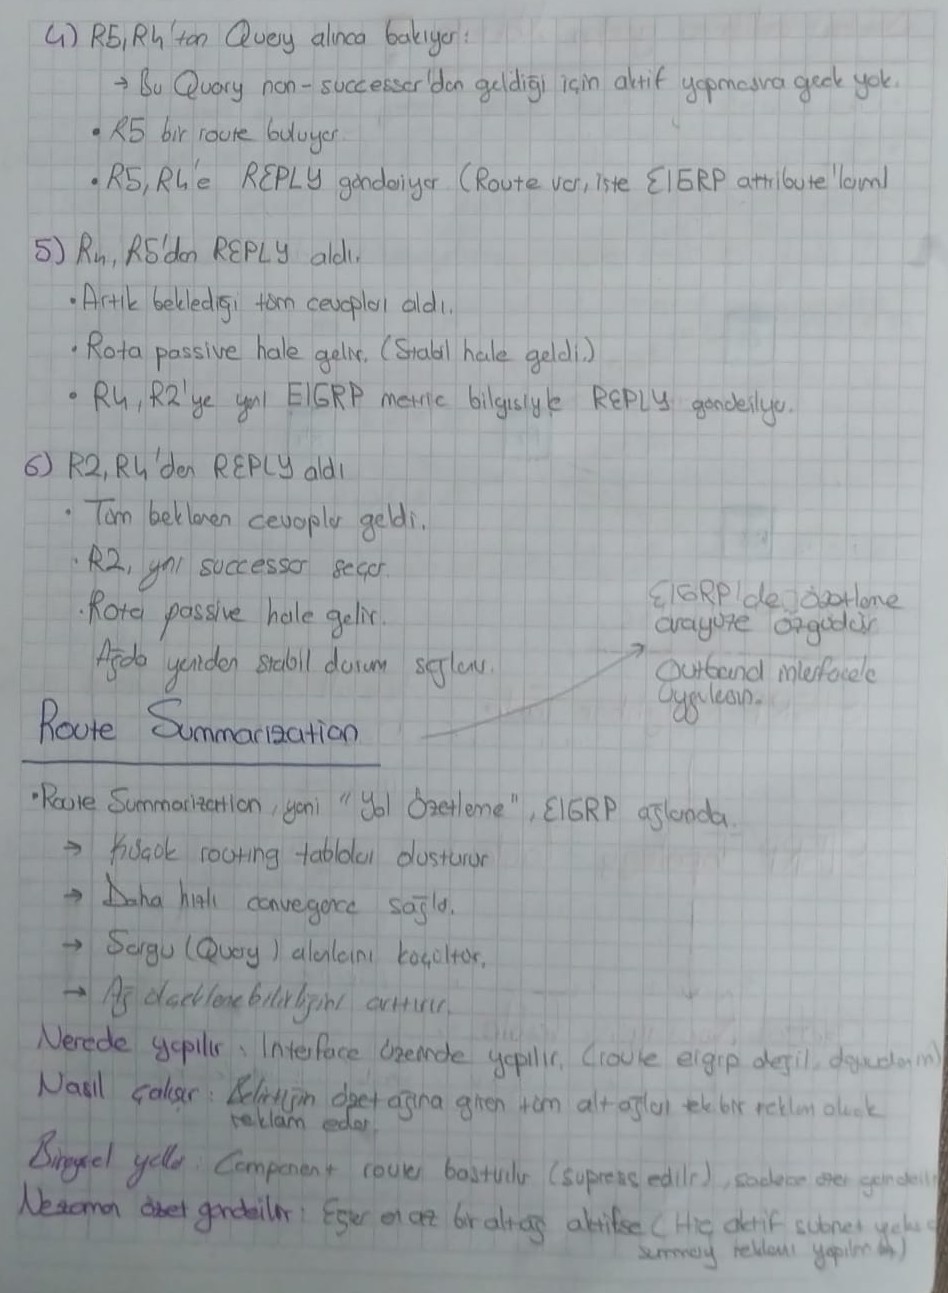 4) R5, R4'ten Query alınca bakıyor:
→ Bu Query non-successor'dan geldiği için aktif yapmasına gerek yok.
• R5 bir route buluyor.
• R5, R4'e REPLY gönderiyor (Route var, işte EIGRP attribute'larım)
5) R4, R5'den REPLY aldı.
• Artık beklediği tüm cevapları aldı.
• Rota passive hale gelir. (Stabil hale geldi.)
• R4, R2'ye yeni EIGRP metric bilgisiyle REPLY gönderiliyor.
6) R2, R4'den REPLY aldı
• Tüm beklenen cevaplar geldi.
• R2, yeni successor seçer.
• Rota passive hale gelir.
Ağda yeniden stabil durum sağlanır.
EIGRP'de özetleme
arayüze özgüdür
Outband interface'e
uygulanır.
Route Summarization
• Route Summarization, yani "Yol Özetleme", EIGRP ağlarında.
→ Küçük routing tabloları oluşturur
→ Daha hızlı convegence sağlar.
→ Sorgu (Query) alanlarını küçültür.
→ Ağ ölçeklenebilirliğini arttırır.
Nerede yapılır: Interface üzerinde yapılır. (route eigrp değil,
Nasıl çalışır: Belirtilen özet ağına giren tüm alt ağları tek bir reklam olarak
reklam eder.
Bireysel yollar: Component routes bastırılır (supress edilir), sadece özet gönderilir
Ne zaman özet gönderilir: Eğer en az bir alt ağ aktifse (Hiç aktif subnet yoksa
summary reklamı yapılmaz)